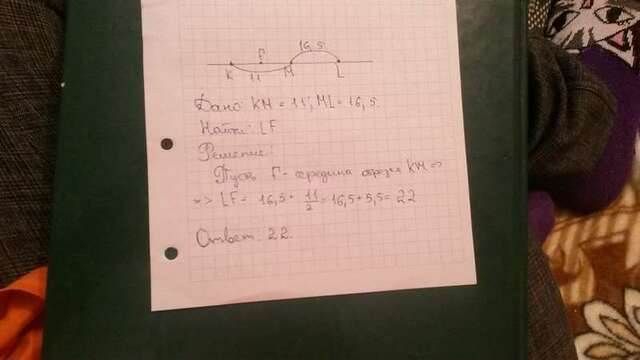 16,5
F
K 11 M L
Дано: KM = 11, ML = 16,5.
Найти: LF
Решение:
Пусть F - середина отрезка KM =>
=> LF = 16,5 + 11/2 = 16,5 + 5,5 = 22
Ответ: 22.